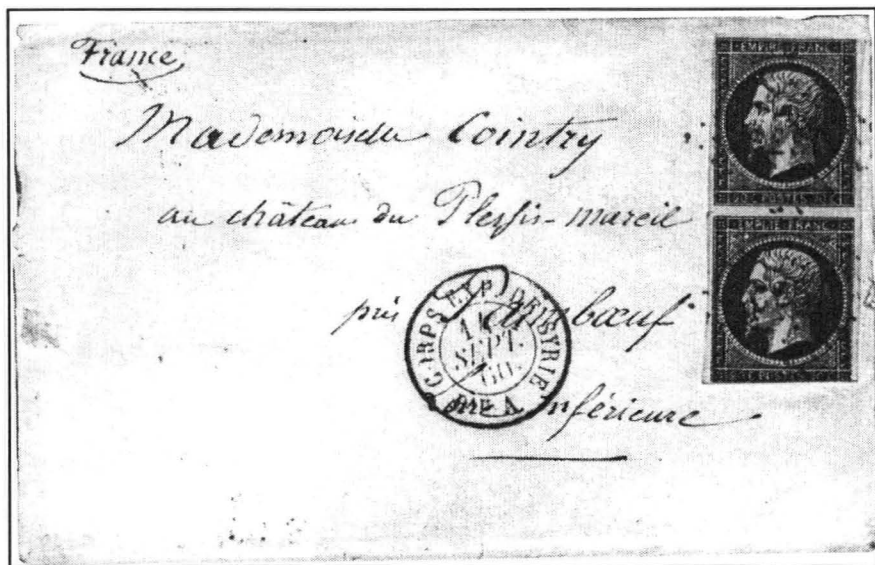 France
EMPIRE FRANC
Mademoiselle Cointry
au château du Plessis-mareil
EMPIRE FRANC
près
CORPS EXP. DE SYRIE
SEPT.
60
Bau A
inférieure